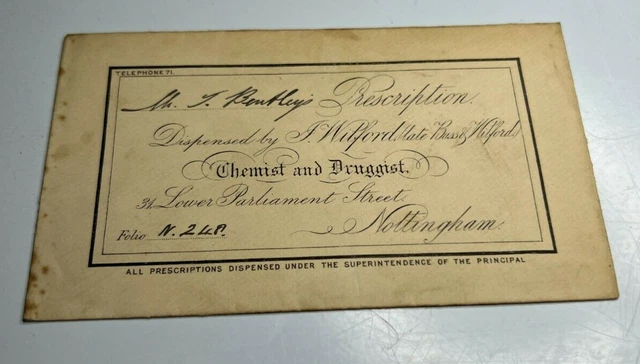 TELEPHONE 71.
Mr. T. Bentley's Prescription.
Dispensed by F. Wilford, (late Buss & Wilford)
Chemist and Druggist,
34, Lower Parliament Street,
Nottingham.
Folio N. 248.
ALL PRESCRIPTIONS DISPENSED UNDER THE SUPERINTENDENCE OF THE PRINCIPAL